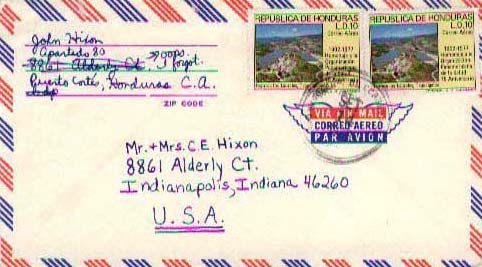 John Hixon
Apartado 20
8861 Alderly Ct. → oops.
I forgot.
Puerto Cortés, Honduras C.A.
ZIP CODE
REPUBLICA DE HONDURAS
L.0.10
Correo Aéreo
1902-1977
REPUBLICA DE HONDURAS
L.0.10
Correo Aéreo
1902-1977
VIA AIR MAIL
CORREO AEREO
PAR AVION
Mr. + Mrs. C.E. Hixon
8861 Alderly Ct.
Indianapolis, Indiana 46260
U.S.A.